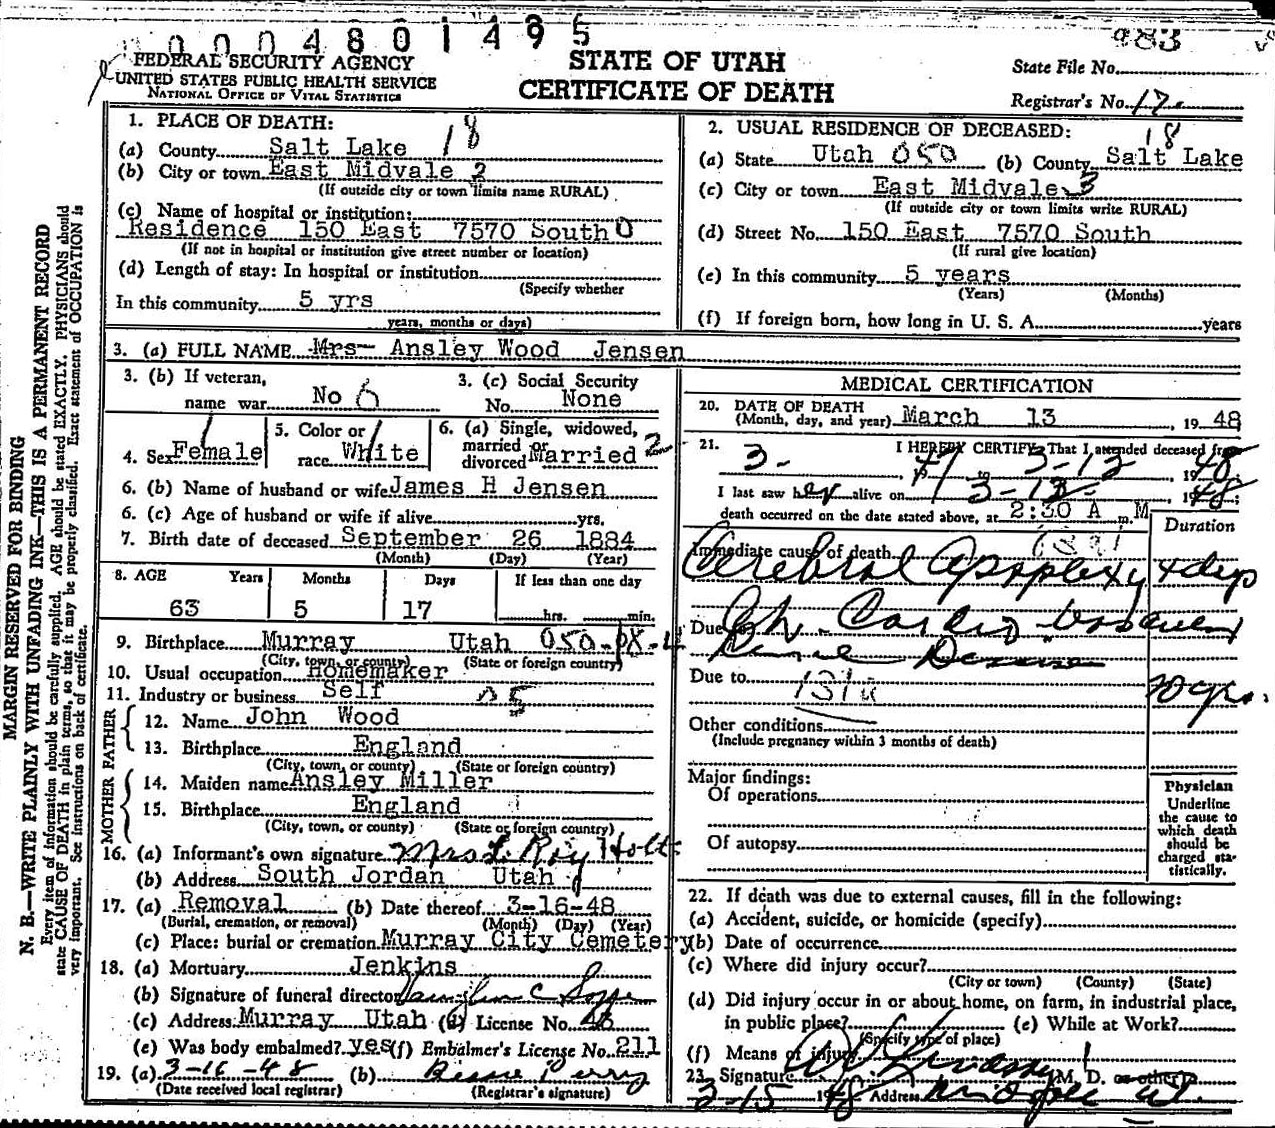 00004801495
983
FEDERAL SECURITY AGENCY
UNITED STATES PUBLIC HEALTH SERVICE
NATIONAL OFFICE OF VITAL STATISTICS
STATE OF UTAH
CERTIFICATE OF DEATH
State File No.
Registrar's No. 17.
MARGIN RESERVED FOR BINDING
N. B.—WRITE PLAINLY WITH UNFADING INK—THIS IS A PERMANENT RECORD
Every item of information should be carefully supplied. AGE should be stated EXACTLY. PHYSICIANS should
state CAUSE OF DEATH in plain terms, so that it may be properly classified. Exact statement of OCCUPATION is
very important. See instructions on back of certificate.
1. PLACE OF DEATH: 18
(a) County Salt Lake
(b) City or town East Midvale 2
(If outside city or town limits name RURAL)
(c) Name of hospital or institution:
Residence 150 East 7570 South 0
(If not in hospital or institution give street number or location)
(d) Length of stay: In hospital or institution
(Specify whether
In this community 5 yrs
years, months or days)
2. USUAL RESIDENCE OF DECEASED: 18
(a) State Utah 050 (b) County Salt Lake
(c) City or town East Midvale 3
(If outside city or town limits write RURAL)
(d) Street No. 150 East 7570 South
(If rural give location)
(e) In this community 5 years
(Years) (Months)
(f) If foreign born, how long in U. S. A. years
3. (a) FULL NAME Mrs Ansley Wood Jensen
3. (b) If veteran, name war No 6
3. (c) Social Security No. None
4. Sex Female
5. Color or race White
6. (a) Single, widowed, married or divorced Married 2
6. (b) Name of husband or wife James H Jensen
6. (c) Age of husband or wife if alive yrs.
7. Birth date of deceased September 26 1884
(Month) (Day) (Year)
8. AGE Years Months Days If less than one day
63 5 17 hrs. min.
9. Birthplace Murray Utah 050-18-4
(City, town, or county) (State or foreign country)
10. Usual occupation Homemaker
11. Industry or business Self 05
FATHER
12. Name John Wood
13. Birthplace England
(City, town, or county) (State or foreign country)
MOTHER
14. Maiden name Ansley Miller
15. Birthplace England
(City, town, or county) (State or foreign country)
16. (a) Informant's own signature Mrs L. Roy Holt
(b) Address South Jordan Utah
17. (a) Removal (b) Date thereof 3-16-48
(Burial, cremation, or removal) (Month) (Day) (Year)
(c) Place: burial or cremation Murray City Cemetery
18. (a) Mortuary Jenkins
(b) Signature of funeral director
(c) Address Murray Utah (d) License No. 48
(e) Was body embalmed? yes (f) Embalmer's License No. 211
19. (a) 3-16-48 (b)
(Date received local registrar) (Registrar's signature)
MEDICAL CERTIFICATION
20. DATE OF DEATH
(Month, day, and year) March 13, 1948
21. I HEREBY CERTIFY, That I attended deceased from
3- 47 to 3-13 1948
I last saw her alive on 3-13- 1948;
death occurred on the date stated above, at 2:30 A m. M
Duration
Immediate cause of death
Cerebral Apoplexy
Due to Ch. Cardio Vascular
Renal Disease
Due to 131a 10 yrs.
Other conditions
(Include pregnancy within 3 months of death)
Major findings:
Of operations
Of autopsy
Physician
Underline
the cause to
which death
should be
charged sta-
tistically.
22. If death was due to external causes, fill in the following:
(a) Accident, suicide, or homicide (specify)
(b) Date of occurrence
(c) Where did injury occur?
(City or town) (County) (State)
(d) Did injury occur in or about home, on farm, in industrial place,
in public place? (e) While at Work?
(Specify type of place)
(f) Means of injury
23. Signature M. D. or other
3-15 1948 Address Midvale Ut.